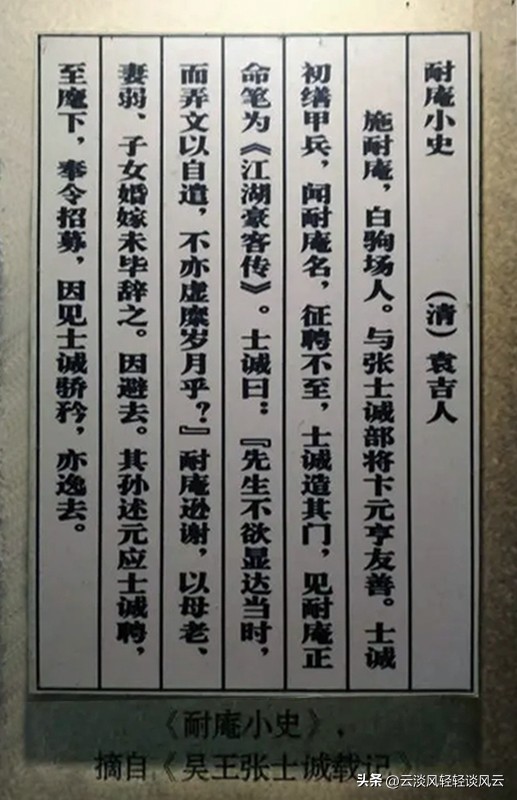 耐庵小史 （清）袁吉人
施耐庵，白驹场人。与张士诚部将卞元亨友善。士诚
初缮甲兵，闻耐庵名，征聘不至，士诚造其门，见耐庵正
命笔为《江湖豪客传》。士诚曰：『先生不欲显达当时，
而弄文以自遣，不亦虚糜岁月乎？』耐庵逊谢，以母老、
妻弱、子女婚嫁未毕辞之。因避去。其孙述元应士诚聘，
至麾下，奉令招募，因见士诚骄矜，亦逸去。
《耐庵小史》，
摘自《吴王张士诚载记》
头条 @云淡风轻轻谈风云